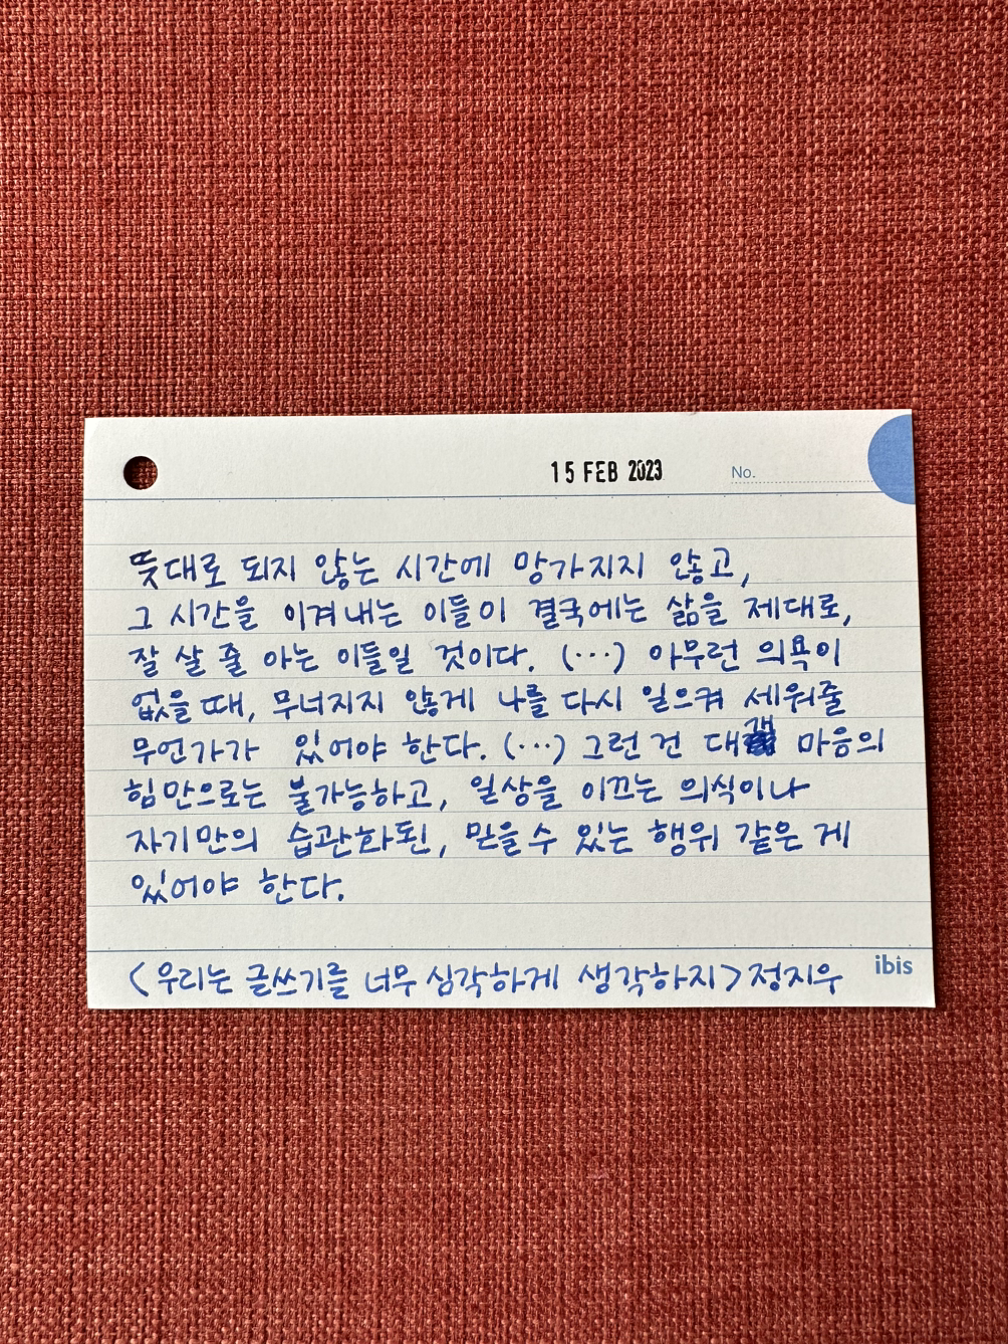 15 FEB 2023 No.
뜻대로 되지 않는 시간에 망가지지 않고,
그 시간을 이겨내는 이들이 결국에는 삶을 제대로,
잘 살 줄 아는 이들일 것이다. (···) 아무런 의욕이
없을 때, 무너지지 않게 나를 다시 일으켜 세워줄
무언가가 있어야 한다. (···) 그런 건 대개 마음의
힘만으로는 불가능하고, 일상을 이끄는 의식이나
자기만의 습관화된, 믿을 수 있는 행위 같은 게
있어야 한다.
<우리는 글쓰기를 너무 심각하게 생각하지> 정지우
ibis